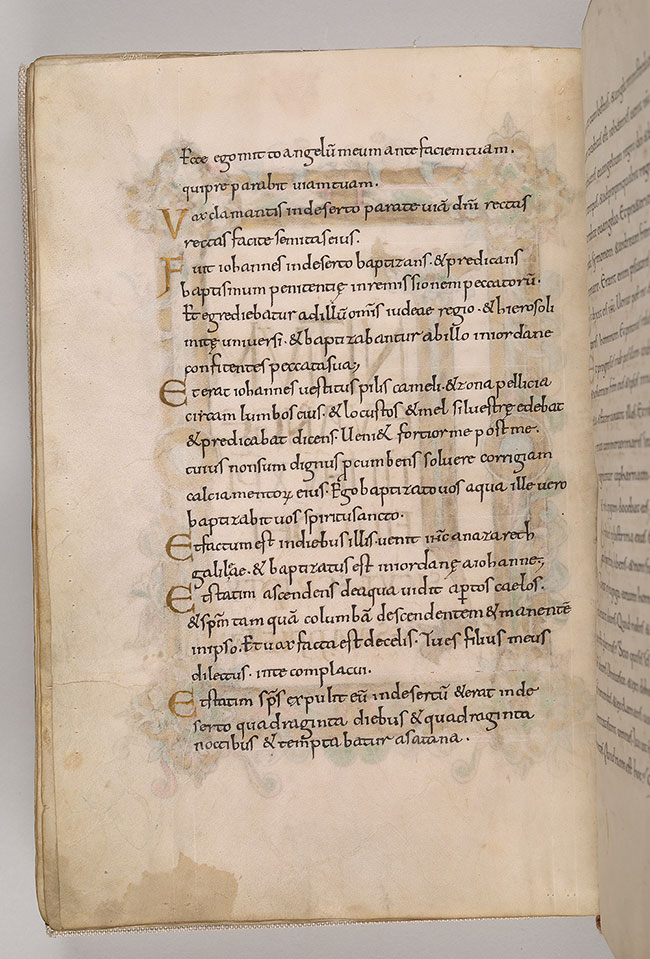 Ecce ego mitto angelū meum ante faciem tuam.
qui pre parabit uiam tuam.
Vox clamantis in deserto parate uiā dn̄i rectas
rectas facite semitas eius.
Fuit iohannes in deserto baptizans. & predicans
baptismum penitentię in remissionem peccatorū.
Et egrediebatur ad illū omīs iudeae regio. & hierosoli
mitę uniuersi. & baptizabantur ab illo in iordane
confitentes peccata sua;
Et erat iohannes uestitus pilis cameli. & zona pellicia
circam lumbos eius. & locustos & mel siluestrę edebat
& predicabat dicens. Ueni& fortior me post me.
cuius non sum dignus ꝓcumbens soluere corrigiam
calciamentoꝝ eius. Ego baptizato uos aqua ille uero
baptizabit uos spiritu sancto.
Et factum est in diebus illis. uenit ih̄c a nazareth
galilęae. & baptizatus est in iordanę a iohanne;
Et statim ascendens de aqua uidit aꝑtos caelos.
& sp̄m tam quā columbā descendentem & manentē
in ipso. Et uox facta est de celis. Tu es filius meus
dilectus. in te complacui.
Et statim sp̄s expulit eū in desertū & erat in de
serto quadraginta diebus & quadraginta
noctibus & temptabatur a satana.